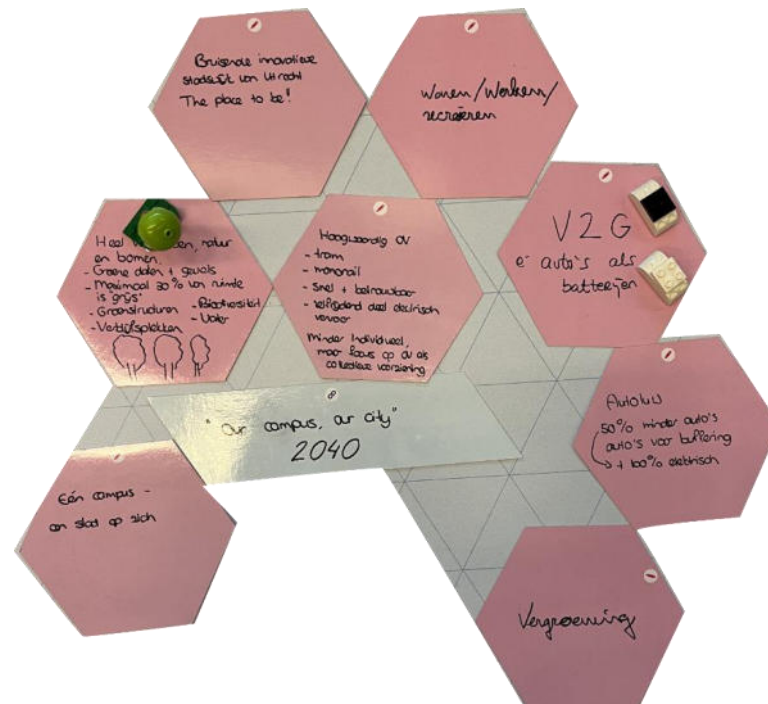 Bruisende innovatieve
stadswijk van Utrecht
The place to be!
Wonen/Werken/
recreëren
Heel natuur
en bomen.
- Groene daken + gevels
- Maximaal 30% van ruimte
is "grijs"
- Groenstructuren
- Biodiversiteit
- Verblijfsplekken
- Water
Hoogwaardig OV
- tram
- monorail
- Snel + betrouwbaar
- zelfrijdend deel elektrisch
vervoer
Minder individueel,
meer focus op OV als
collectieve voorziening
V2G
e- auto's als
batterijen
"Our campus, our city"
2040
Autoluw
50% minder auto's
auto's voor buffering
→ + 100% elektrisch
Eén campus -
een stad op zich
Vergroening